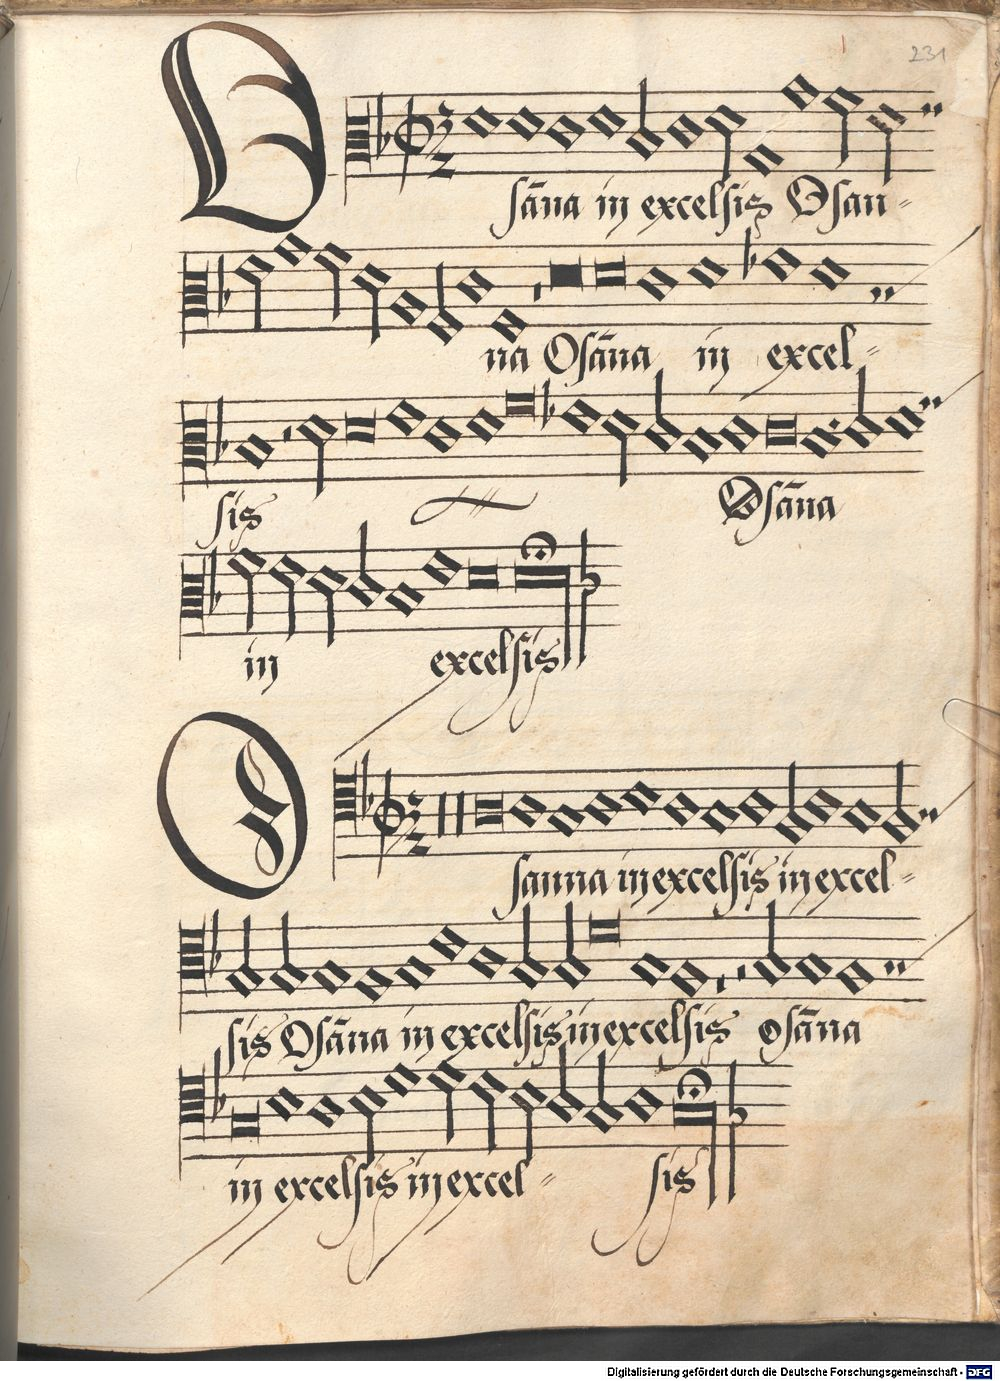 231
O
sāna in excelsis Osan=
na Osāna in excel=
sis Osāna
in excelsis
O
sanna in excelsis in excel=
sis Osāna in excelsis in excelsis osāna
in excelsis in excel= sis
Digitalisierung gefördert durch die Deutsche Forschungsgemeinschaft - DFG